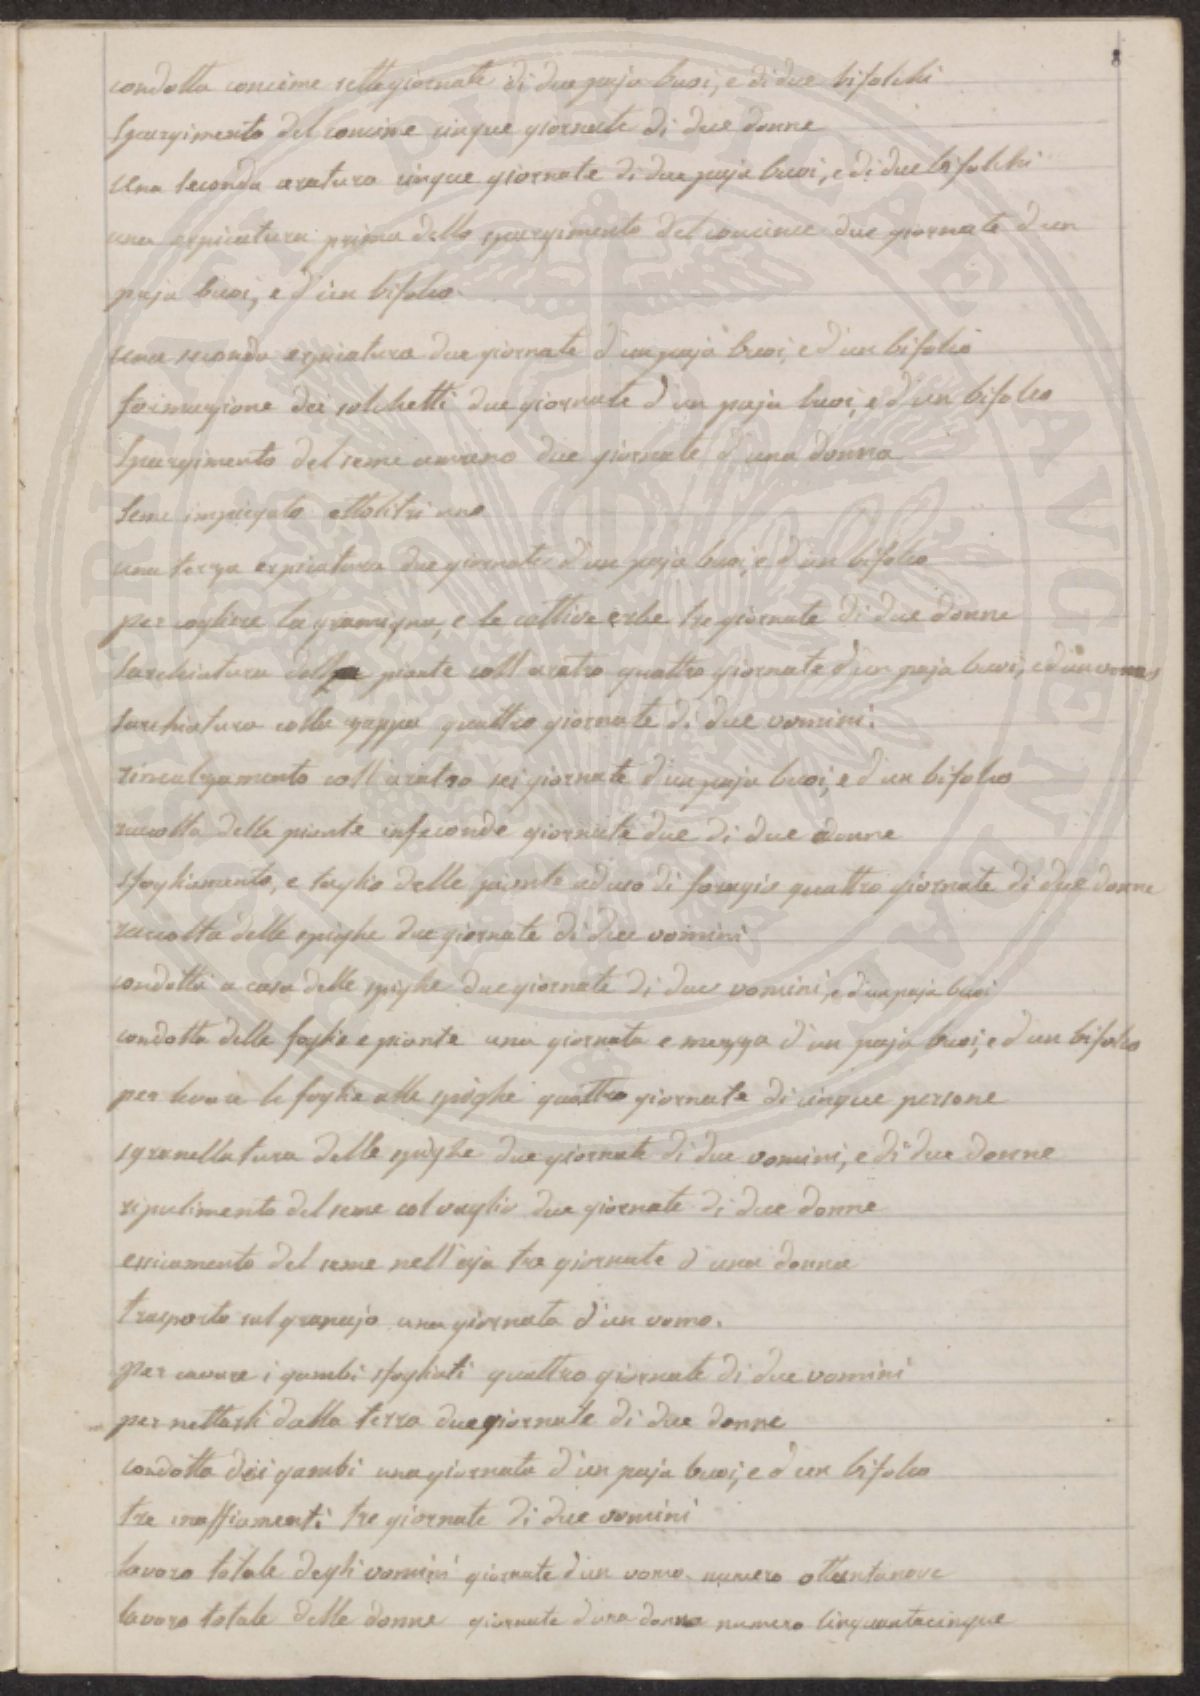 8
condotta concime sette giornate di due paja buoi, e di due bifolchi
Spargimento del concime cinque giornate di due donne
Una seconda aratura cinque giornate di due paja buoi, e di due bifolchi
una erpicatura prima dello spargimento del concime due giornate d'un
paja buoi, e d'un bifolco
una seconda erpicatura due giornate d'un paja buoi, e d'un bifolco
formazione dei solchetti due giornate d'un paja buoi, e d'un bifolco
Spargimento del seme a mano due giornate d'una donna
Seme impiegato ettolitri uno
una terza erpicatura due giornate d'un paja buoi, e d'un bifolco
per cogliere la gramigna, e le cattive erbe tre giornate di due donne
Sarchiatura delle piante coll'aratro quattro giornate d'un paja buoi, ed un uomo
Sarchiatura colla zappa quattro giornate di due uomini.
rincalzamento coll'aratro sei giornate d'un paja buoi, e d'un bifolco
raccolta delle piante infeconde giornate due di due donne
sfogliamento, e taglio delle piante ad uso di foragio quattro giornate di due donne
raccolta delle spighe due giornate di due uomini
condotta a casa delle spighe due giornate di due uomini, e d'un paja buoi
condotta delle foglie e piante una giornata e mezza d'un paja buoi, e d'un bifolco
per levare le foglie alle spighe quattro giornate di cinque persone
sgranellatura delle spighe due giornate di due uomini, e di due donne
ripulimento del seme col vaglio due giornate di due donne
essicamento del seme nell'aja tre giornate d'una donna
trasporto sul granajo una giornata d'un uomo.
per cavare i gambi sfogliati quattro giornate di due uomini
per nettarli dalla terra due giornate di due donne
condotta dei gambi una giornata d'un paja buoi, e d'un bifolco
tre inaffiamenti tre giornate di due uomini
lavoro totale degli uomini giornate d'un uomo numero ottantanove
lavoro totale delle donne giornate d'una donna numero cinquantacinque